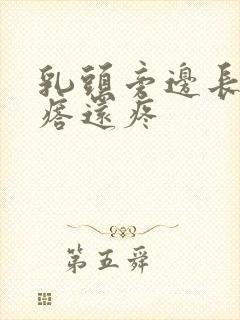 乳頭旁邊長
痞還疼
第五舜